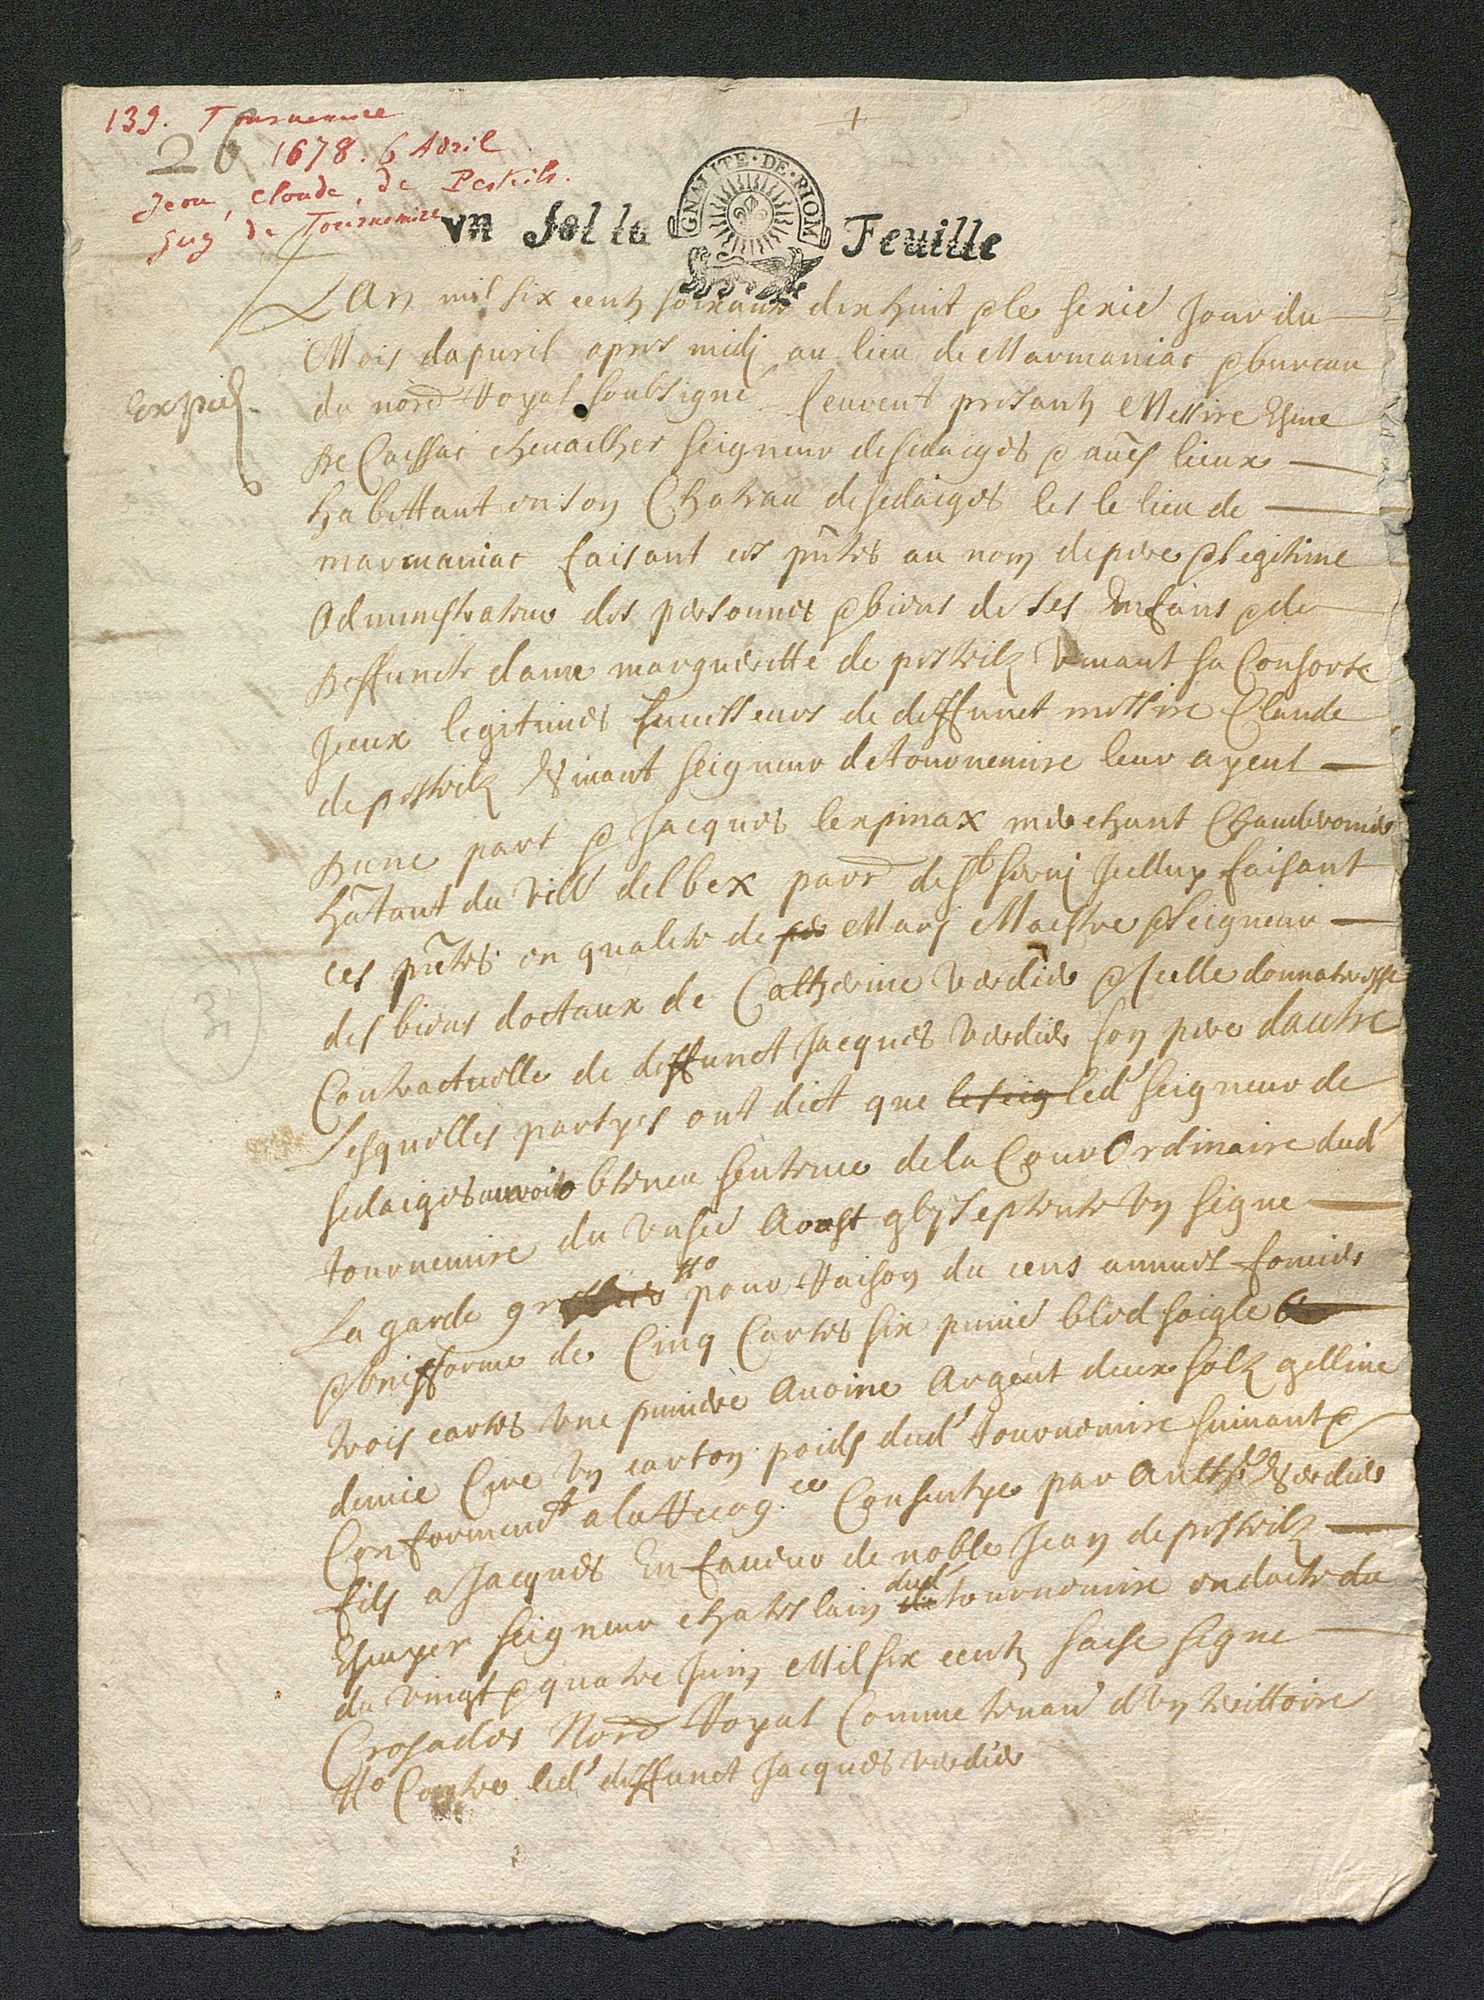 139. Tournemire
26 1678. 6 Avril
Jean, Claude, de Pestels.
Sug de Tournemire
GNALITE·DE·RIOM
vn sol la Feuille
Lan mil six centz soixante dixhuit & le sixie Jour du
Mois dapvril apres midj au lieu de Marmaniac & bureau
Expedi
du nore Royal soubsigne feurent presantz Messire Esme
De Caissac chevailher seigneur desedaiges & aues lieux
habittant en son Chateau desedaiges les le lieu de
marmaniac faisant ces pntes au nom de pere & legitime
Administrateur des personnes & biens de ses Enfans & de
Deffuncte dame margueritte de pestelz vivant sa Consorte
Jceux legitimes successeurs de deffunct messire Claude
de pestelz vivant seigneur de tournemire leur ayeul
Dune part & Jacques lespinax merchant Chaudronier
hatant du vill delbex parr de st sernj Jcelluy faisant
ces pntes en qualite de per Marj Maistre & seigneur
des biens doctaux de Catherine verdier & Jcelle donnateresse
Contractuelle de deffunct Jacques verdier son pere dautre
Lesquelles partyes ont dict que le seig led seigneur de
sedaiges auroit obtenu sentence de la Cour Ordinaire dud
tournemire du Aoust septente un signe
La garde gr rro pour Raison du cens annuel foncier
& de Cinq Cartes six punie bled soigle
trois cartes une puniere Avoine Argent deux solz gelline
demie Cire un carton poids dud tournemire suivant &
Conforment a la Recogce Consentye par Anthe verdier
fils a Jacques En faveur de noble Jean de pestelz
Escuyer seigneur chatelain de dud tournemire en dacte du
du vingt & quatre Juin Mil six centz saise signe
Crosades Nore Royal Comme tenan dun territoire
rro Contre led deffunct Jacques verdier
3